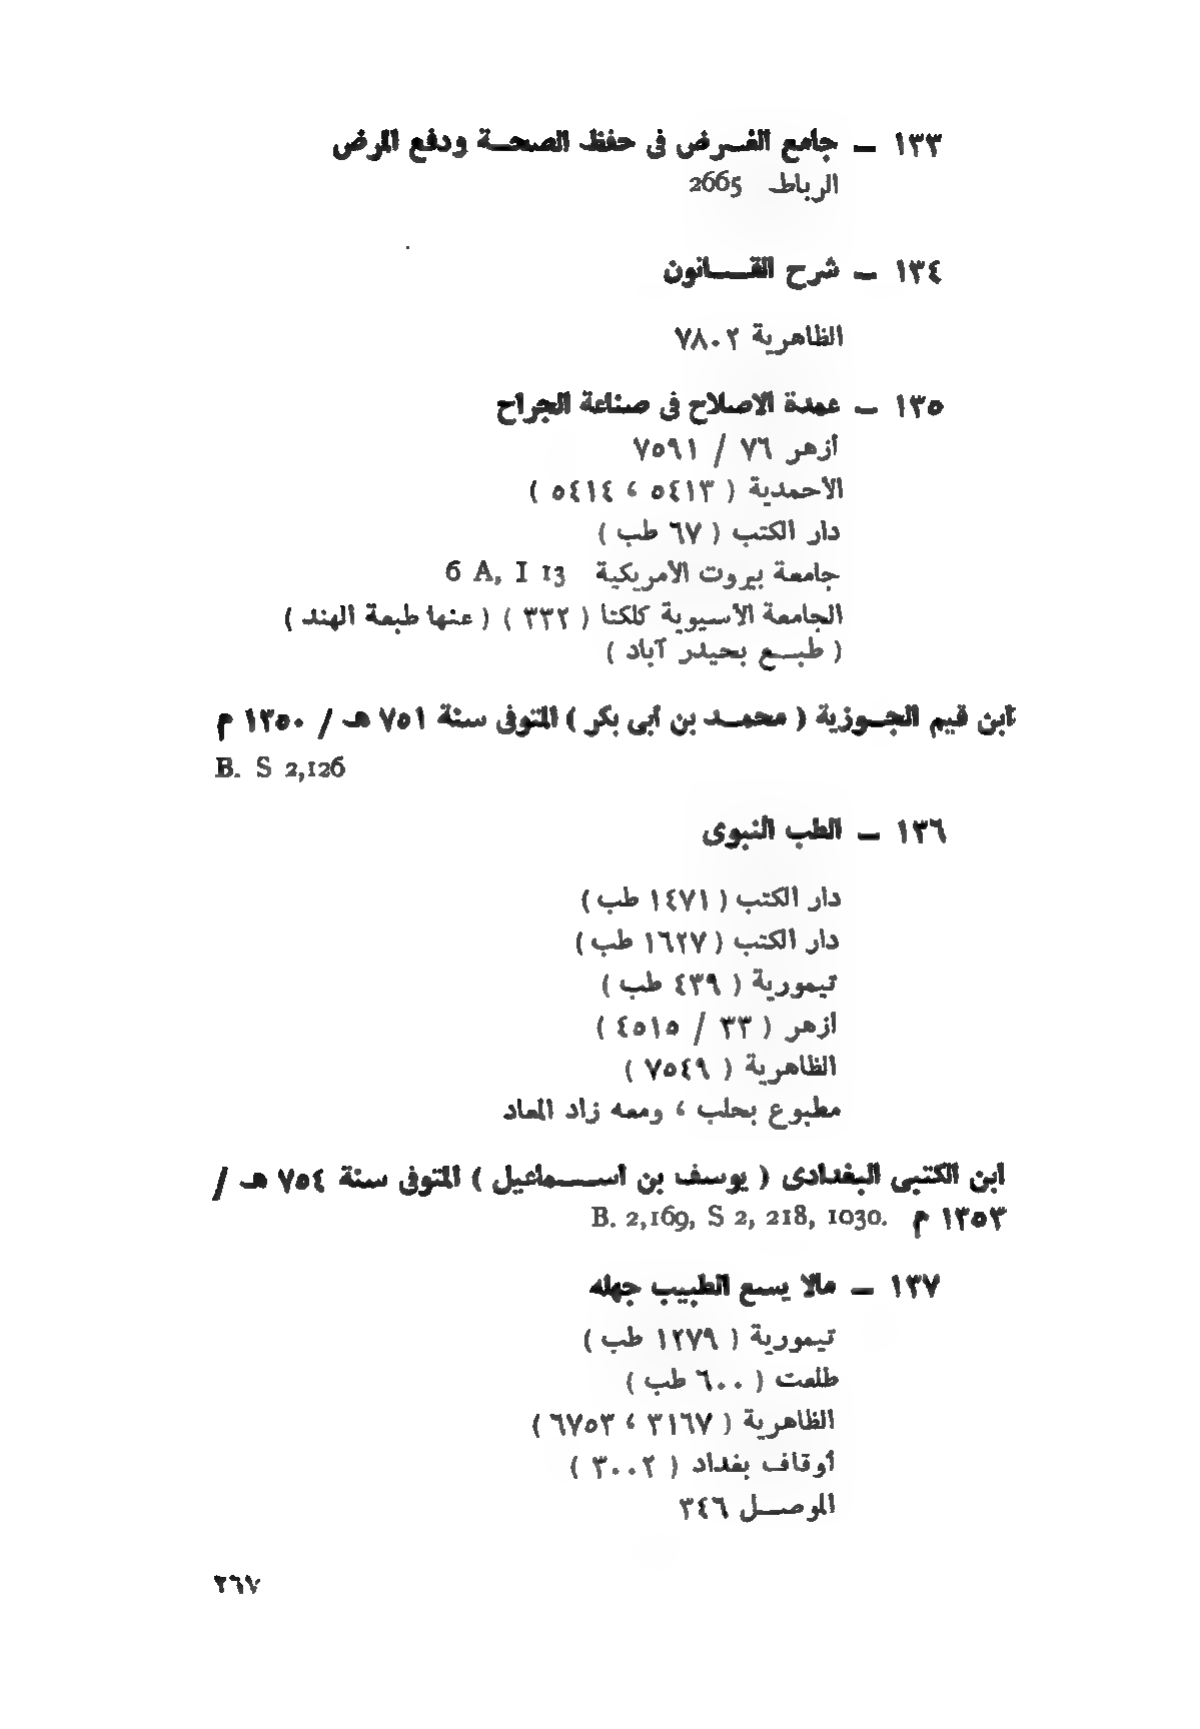 ١٣٣ ــ جامع الغــرض فى حفظ الصحــة ودفع المرض
الرباط 2665
١٣٤ ــ شرح القــــانون
الظاهرية ٧٨٠٢
١٣٥ ــ عمدة الاصلاح فى صناعة الجراح
أزهر ٧٦ / ٧٥٩١
الأحمدية ( ٥٤١٣ ، ٥٤١٤ )
دار الكتب ( ٦٧ طب )
جامعة بيروت الأمريكية 6 A, I 13
الجامعة الأسيوية كلكتا ( ٣٣٢ ) ( عنها طبعة الهند )
( طبــع بحيدر آباد )
ابن قيم الجــوزية ( محمــد بن أبى بكر ) المتوفى سنة ٧٥١ هـ / ١٣٥٠ م
B. S 2,126
١٣٦ ــ الطب النبوى
دار الكتب ( ١٤٧١ طب )
دار الكتب ( ١٦٢٧ طب )
تيمورية ( ٤٣٩ طب )
أزهر ( ٣٣ / ٤٥١٥ )
الظاهرية ( ٧٥٤٩ )
مطبوع بحلب ، ومعه زاد المعاد
ابن الكتبى البغدادى ( يوسف بن اســـــماعيل ) المتوفى سنة ٧٥٤ هـ /
١٣٥٣ م B. 2,169, S 2, 218, 1030.
١٣٧ ــ مالا يسع الطبيب جهله
تيمورية ( ١٢٧٩ طب )
طلعت ( ٦٠٠ طب )
الظاهرية ( ٣١٦٧ ، ٦٧٥٣ )
أوقاف بغداد ( ٣٠٠٢ )
الموصــل ٣٤٦
٢٦٧